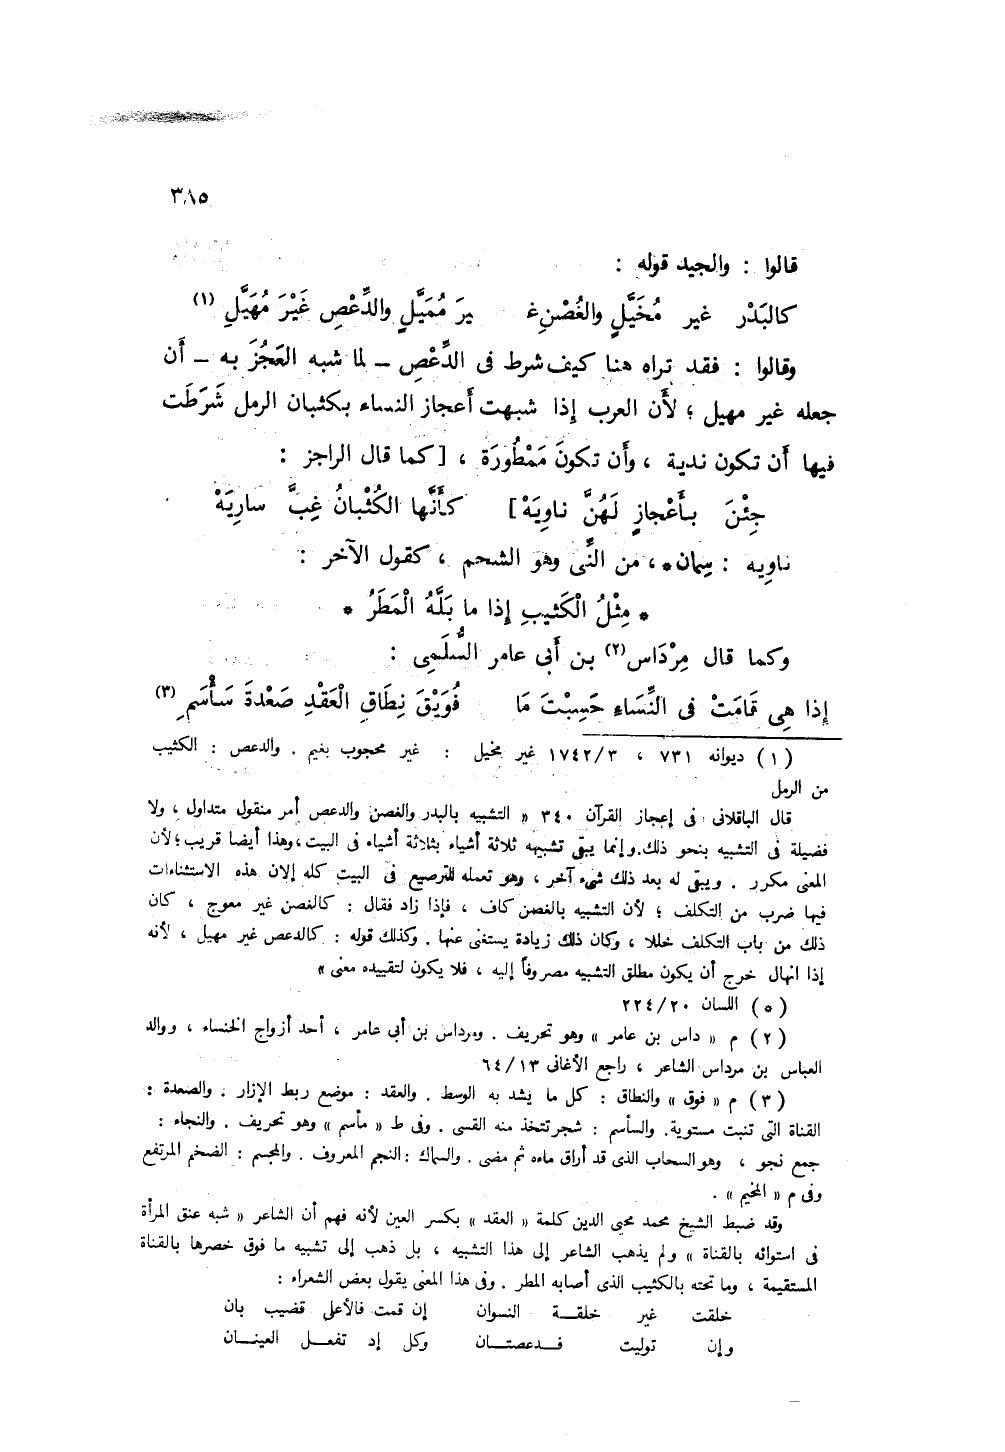 ٣٨٥
قالوا : والجيد قوله :
كالبَدْر غير مُخَيَّلٍ والغُصْنِ غ يرَ مُمَيَّلٍ والدِّعْصِ غَيْرَ مُهَيَّلِ (١)
وقالوا : فقد تراه هنا كيف شرط فى الدِّعْصِ – لما شبه العَجُزَ به – أَن
جعله غير مهيل ؛ لأَن العرب إِذا شبهت أَعجاز النساء بكثبان الرمل شَرَطَت
فيها أَن تكون ندية ، وأَن تكونَ مَمْطُورَة ، [ كما قال الراجز :
جِئْنَ بأَعْجازٍ لَهُنَّ ناوِيَهْ ] كأَنَّها الكُثْبانُ غِبَّ سارِيَهْ
ناوِيه : سِمان * ، من النِّى وهو الشحم ، كقول الآخر :
* مِثْلُ الْكَثيبِ إِذا ما بَلَّهُ الْمَطَرُ *
وكما قال مِرْدَاس (٢) بن أَبى عامر السُّلَمِى :
إِذا هِى قَامَتْ فى النِّسَاءِ حَسِبْتَ مَا فُوَيْقَ نِطَاقِ الْعَقْدِ صَعْدَةَ سَأْسَمِ (٣)
( ١ ) ديوانه ٧٣١ ، ١٧٤٢/٣ غير مخيل : غير محجوب بغيم . والدعص : الكثيب
من الرمل
قال الباقلانى فى إعجاز القرآن ٣٤٠ « التشبيه بالبدر والغصن والدعص أمر منقول متداول ، ولا
فضيلة فى التشبيه بنحو ذلك. وإنما يبقى تشبيهه ثلاثة أشياء بثلاثة أشياء فى البيت ، وهذا أيضا قريب ؛ لأن
المعنى مكرر . ويبقى له بعد ذلك شىء آخر ، وهو تعمله للترصيع فى البيت كله إلان هذه الاستثناءات
فيها ضرب من التكلف ؛ لأن التشبيه بالغصن كاف ، فإذا زاد فقال : كالغصن غير معوج ، كان
ذلك من باب التكلف خللا ، وكان ذلك زيادة يستغنى عنها . وكذلك قوله : كالدعص غير مهيل ، لأنه
إذا انهال خرج أن يكون مطلق التشبيه مصروفاً إليه ، فلا يكون لتقييده معنى »
( * ) اللسان ٢٢٤/٢٠
( ٢ ) م « داس بن عامر » وهو تحريف . ومرداس بن أبى عامر ، أحد أزواج الخنساء ، ووالد
العباس بن مرداس الشاعر ، راجع الأغانى ٦٤/١٣
( ٣ ) م « فوق » والنطاق : كل ما يشد به الوسط . والعقد : موضع ربط الإزار . والصعدة :
القناة التى تنبت مستوية. والسأسم : شجر تتخذ منه القسى . وفى ط « مأسم » وهو تحريف . والنجاء :
جمع نجو ، وهو السحاب الذى قد أراق ماءه ثم مضى . والسماك : النجم المعروف . والمجسم : الضخم المرتفع
وفى م « المخيم » .
وقد ضبط الشيخ محمد محيى الدين كلمة « العقد » بكسر العين لأنه فهم أن الشاعر « شبه عنق المرأة
فى استوائه بالقناة » ولم يذهب الشاعر إلى هذا التشبيه ، بل ذهب إلى تشبيه ما فوق خصرها بالقناة
المستقيمة ، وما تحته بالكثيب الذى أصابه المطر . وفى هذا المعنى يقول بعض الشعراء :
خلقت غير خلقة النسوان إن قمت فالأعلى قضيب بان
وإن توليت فدعصتان وكل إد تفعل العينان